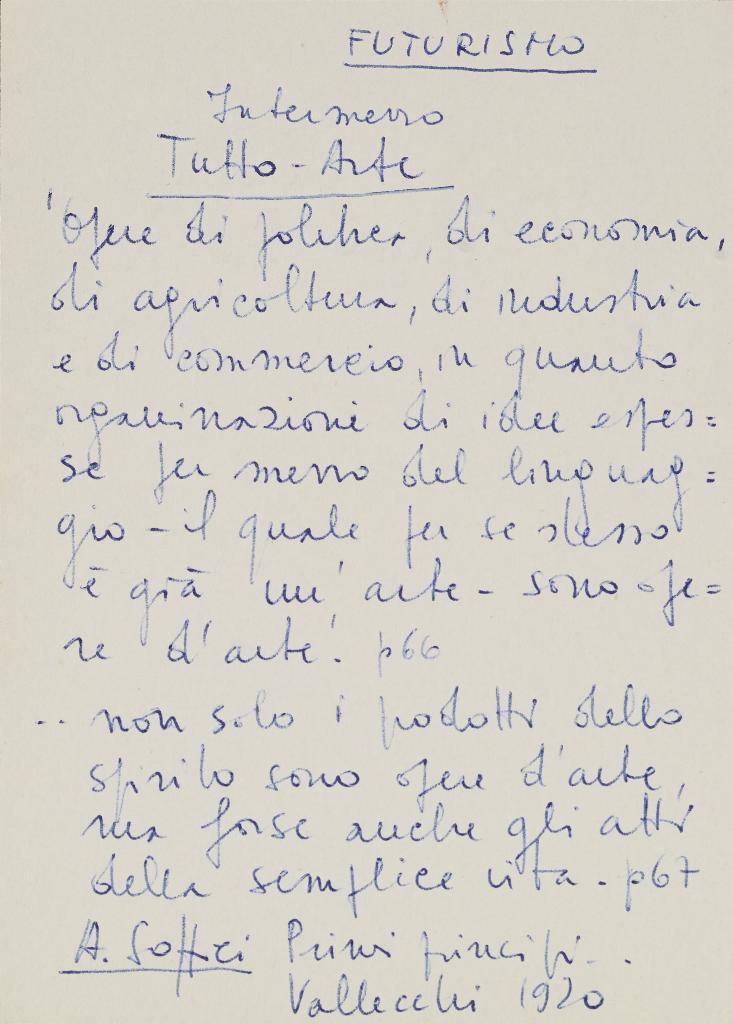 FUTURISMO
Intermezzo
Tutto-Arte
'Opere di politica, di economia,
di agricoltura, di industria
e di commercio, in quanto
organizzazione di idee espres=
se per mezzo del linguag=
gio - il quale per se stesso
è già un'arte - sono ope=
re d'arte'. p66
.. non solo i podotti dello
spirito sono opere d'arte,
ma forse anche gli atti
della semplice vita. p67
A. Soffici Primi principi..
Vallecchi 1920